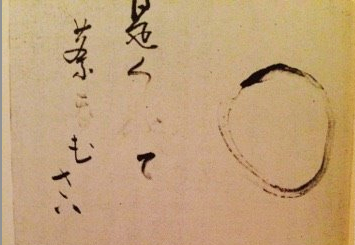 是くふて
茶のむさい